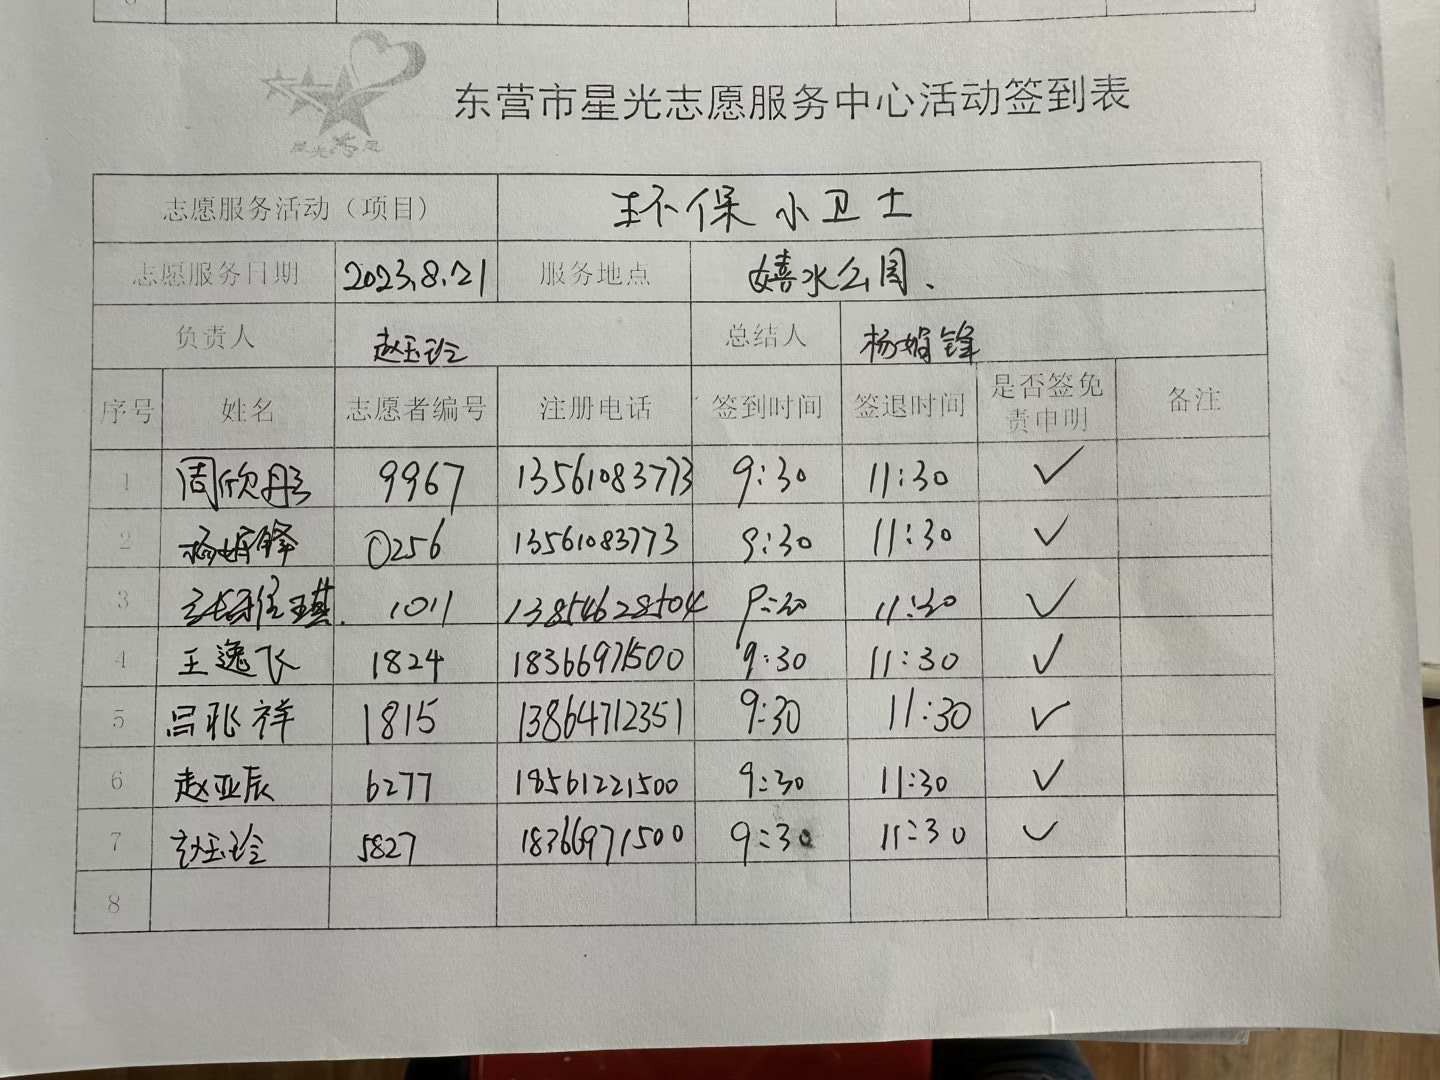 星光志愿
东营市星光志愿服务中心活动签到表
志愿服务活动（项目） 环保小卫士
志愿服务日期 2023.8.21 服务地点 嬉水公园、
负责人 赵玉玲 总结人 杨娟锋
序号 姓名 志愿者编号 注册电话 签到时间 签退时间 是否签免责申明 备注
1 周欣彤 9967 13561083773 9:30 11:30 ✓
2 杨娟锋 0256 13561083773 9:30 11:30 ✓
3 1011 13854628504 9:30 11:30 ✓
4 王逸飞 1824 18366971500 9:30 11:30 ✓
5 吕兆祥 1815 13864712351 9:30 11:30 ✓
6 赵亚辰 6277 18561221500 9:30 11:30 ✓
7 赵玉玲 5827 18366971500 9:30 11:30 ✓
8